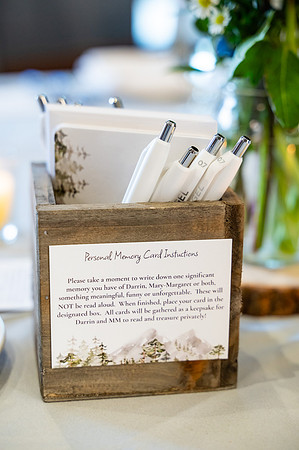 Personal Memory Card Instuctions
Please take a moment to write down one significant
memory you have of Darrin, Mary-Margaret or both,
something meaningful, funny or unforgettable. These will
NOT be read aloud. When finished, place your card in the
designated box. All cards will be gathered as a keepsake for
Darrin and MM to read and treasure privately!
0.7